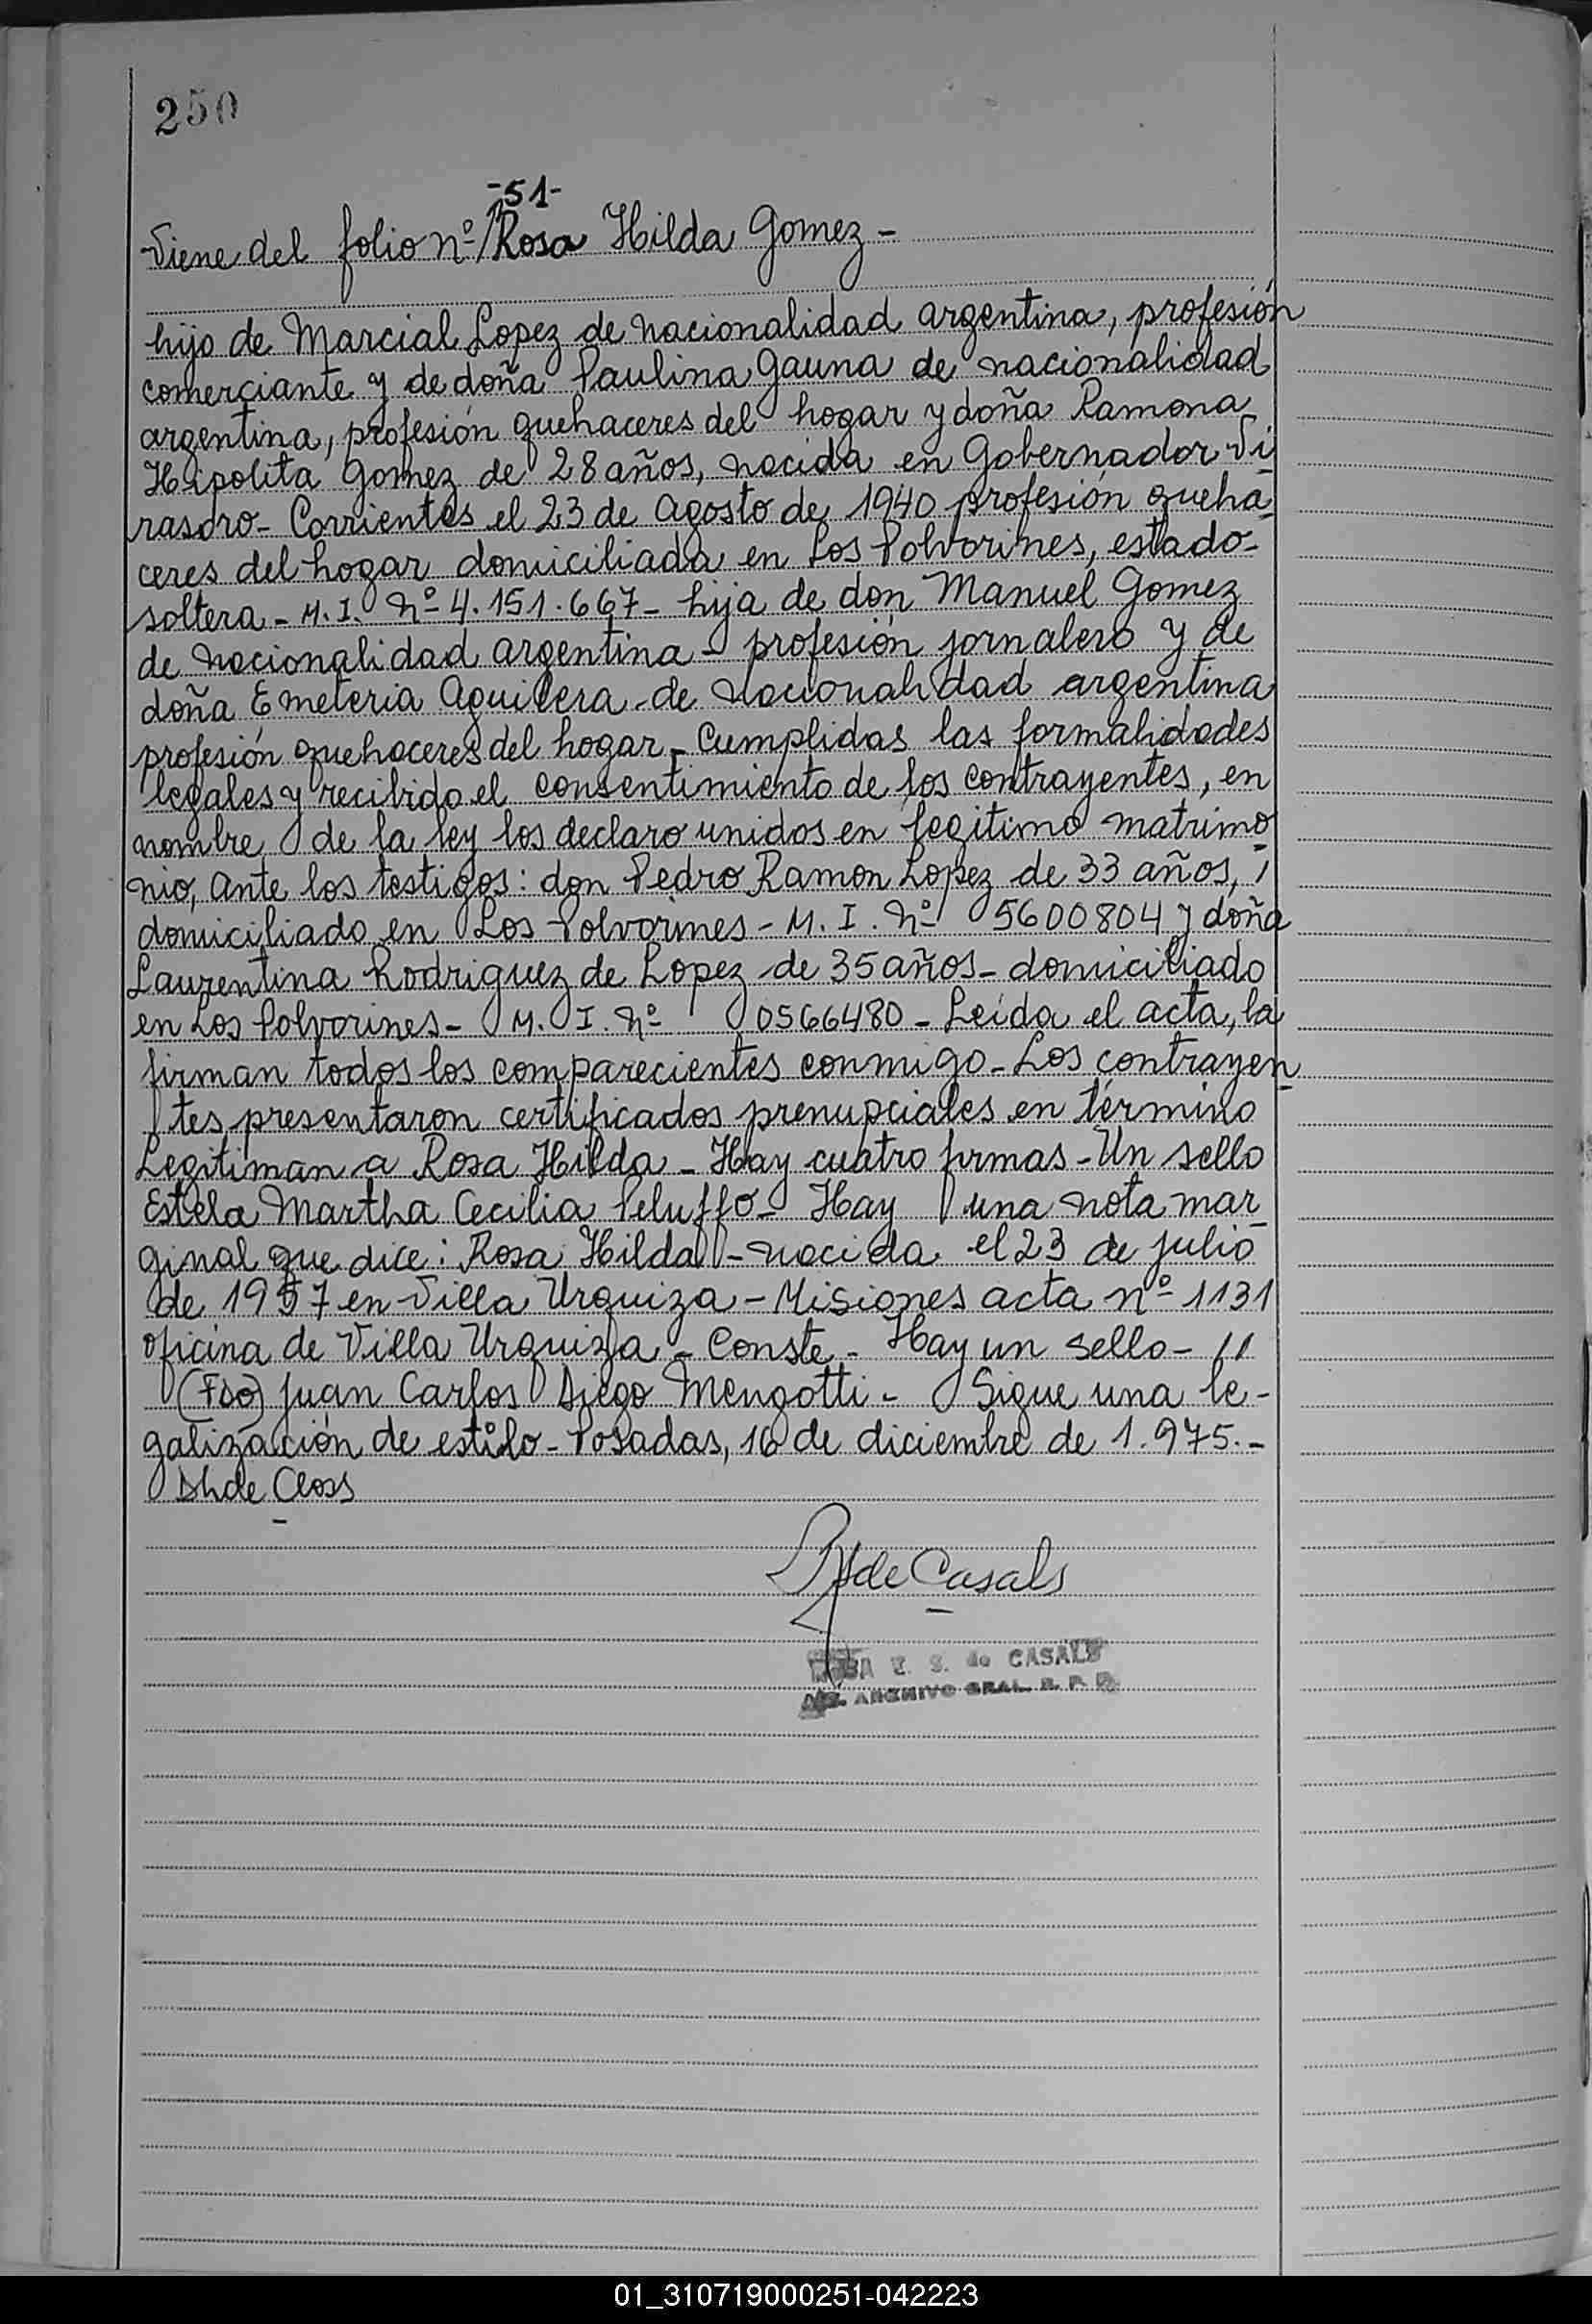 250
-51-
Viene del folio nº / Rosa Hilda Gomez -
hijo de Marcial Lopez de nacionalidad argentina, profesión
comerciante y de doña Paulina Gauna de nacionalidad
argentina, profesión quehaceres del hogar y doña Ramona
Hipolita Gomez de 28 años, nacida en Gobernador Vi
rasoro - Corrientes el 23 de Agosto de 1940 profesión queha
ceres del hogar domiciliada en Los Polvorines, estado-
soltera - M. I. Nº 4.151.667 - hija de don Manuel Gomez
de nacionalidad argentina - profesión jornalero y de
doña Emeteria Aguilera - de nacionalidad argentina
profesión quehaceres del hogar - Cumplidas las formalidades
legales y recibido el consentimiento de los contrayentes, en
nombre de la ley los declaro unidos en legitimo matrimo
nio, ante los testigos: don Pedro Ramon Lopez de 33 años, /
domiciliado en Los Polvorines - M. I. Nº 5600804 y doña
Laurentina Rodriguez de Lopez de 35 años - domiciliado
en Los Polvorines - M. I. Nº 0566480 - Leída el acta, la
firman todos los comparecientes conmigo - Los contrayen
tes presentaron certificados prenupciales en término
Legitiman a Rosa Hilda - Hay cuatro firmas - Un sello
Estela Martha Cecilia Peluffo - Hay una nota mar
ginal que dice: Rosa Hilda - nacida el 23 de julio
de 1957 en Villa Urquiza - Misiones acta nº 1131
oficina de Villa Urquiza - Conste - Hay un sello - //
(Fdo) Juan Carlos Diego Mengotti - Sigue una le-
galización de estilo - Posadas, 16 de diciembre de 1.975.-
de Closs
de Casals
E. S. de CASALS
ARCHIVO GRAL. R. P.
01_310719000251-042223